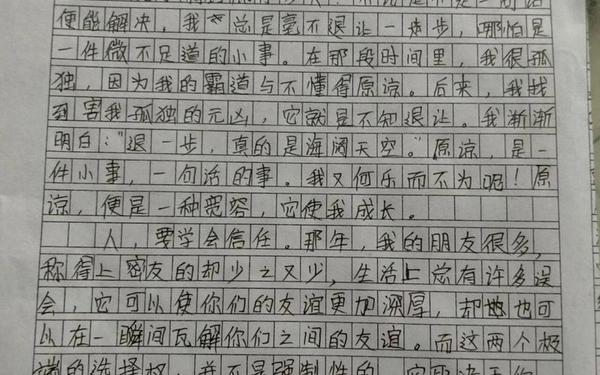 便能解决，我总是毫不退让一步，哪怕是
一件微不足道的小事。在那段时间里，我很孤
独，因为我的霸道与不懂得原谅。后来，我找
到害我孤独的元凶，它就是不知退让。我渐渐
明白："退一步，真的是海阔天空。"原谅，是一
件小事，一句话的事。我又何乐而不为呢！原
谅，便是一种宽容，它使我成长。
人，要学会信任。那年，我的朋友很多，
称得上密友的却少之又少，生活上总有许多误
会，它可以使你们的友谊更加深厚，却也可
以在一瞬间瓦解你们之间的友谊。而这两个极
端的选择权，并不是强制性的，它取决于你